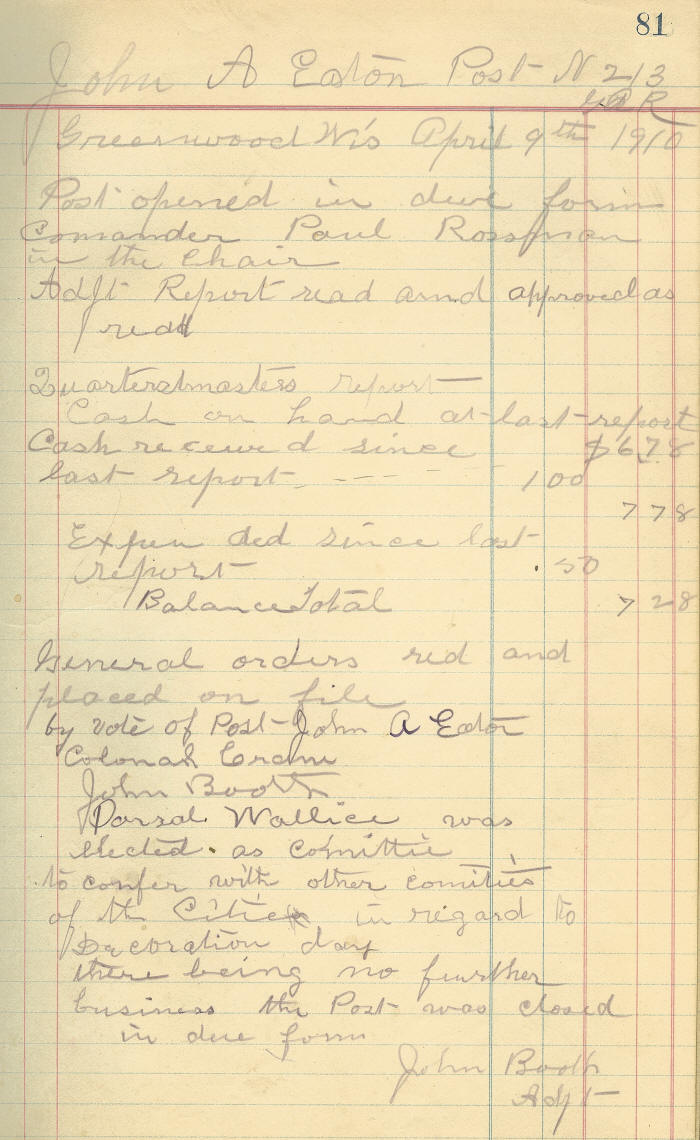 81
John A Eaton Post N 213
G A R
Greenwood Wis April 9th 1910
Post opened in due form
Comander Paul Rossman
in the Chair
Adjt Report read and approved as
red
Quartermasters report
Cash on hand at last report
Cash received since $678
last report 100
778
Expended since last
report .50
Balance Total 728
General orders red and
placed on file
by vote of Post John A Eaton
Colonah
John Booth
Dorsal Wallice was
elected as Comittie
to confer with other comities
of the Cities in regard to
Decoration day
there being no further
business the Post was closed
in due form
John Booth
Adjt